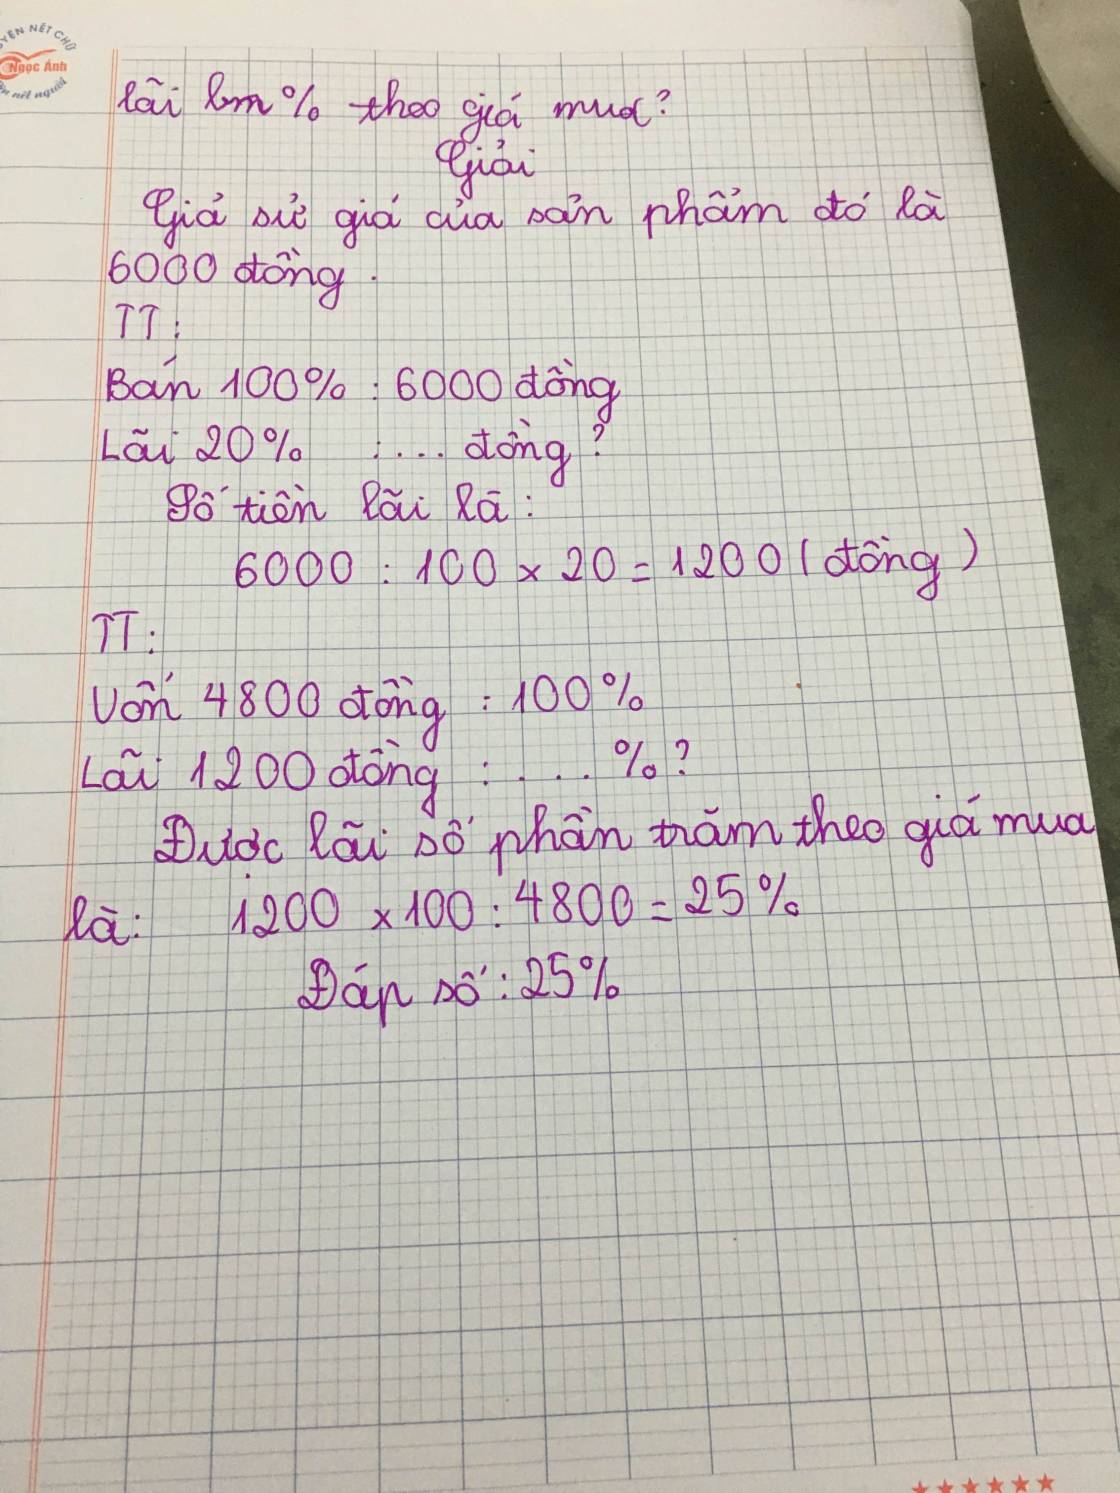 YỆN NÉT CHỮ
Ngọc Ánh
nết người
lãi bm % theo giá mua?
Giải
Giả sử giá của sản phẩm đó là
6000 đồng.
TT:
Bán 100% : 6000 đồng
Lãi 20% : ... đồng?
Số tiền lãi là:
6000 : 100 x 20 = 1200 (đồng)
TT:
Vốn 4800 đồng : 100%
Lãi 1200 đồng : .... %?
Được lãi số phần trăm theo giá mua
là: 1200 x 100 : 4800 = 25%
Đáp số: 25%